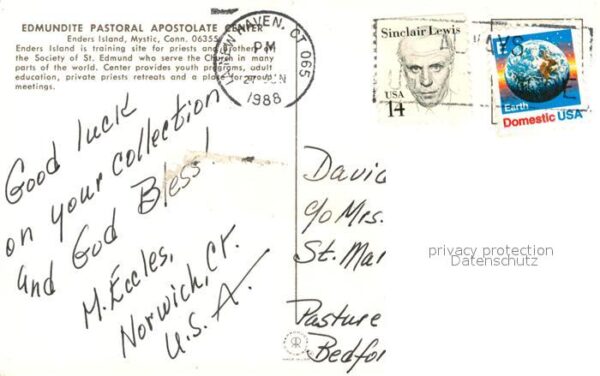 EDMUNDITE PASTORAL APOSTOLATE CENTER
Enders Island, Mystic, Conn. 06355
Enders Island is training site for priests and brothers of
the Society of St. Edmund who serve the Church in many
parts of the world. Center provides youth programs, adult
education, private priests retreats and a place for group
meetings.
HAVEN, CT 065
PM
27 JUN
1988
Sinclair Lewis
USA
14
Earth
Domestic USA
ALWAYS
Good luck
on your collection
and God Bless!
M. Eccles,
Norwich, CT.
U.S.A.
David
c/o Mrs.
St. Mar
Pasture
Bedfor
privacy protection
Datenschutz